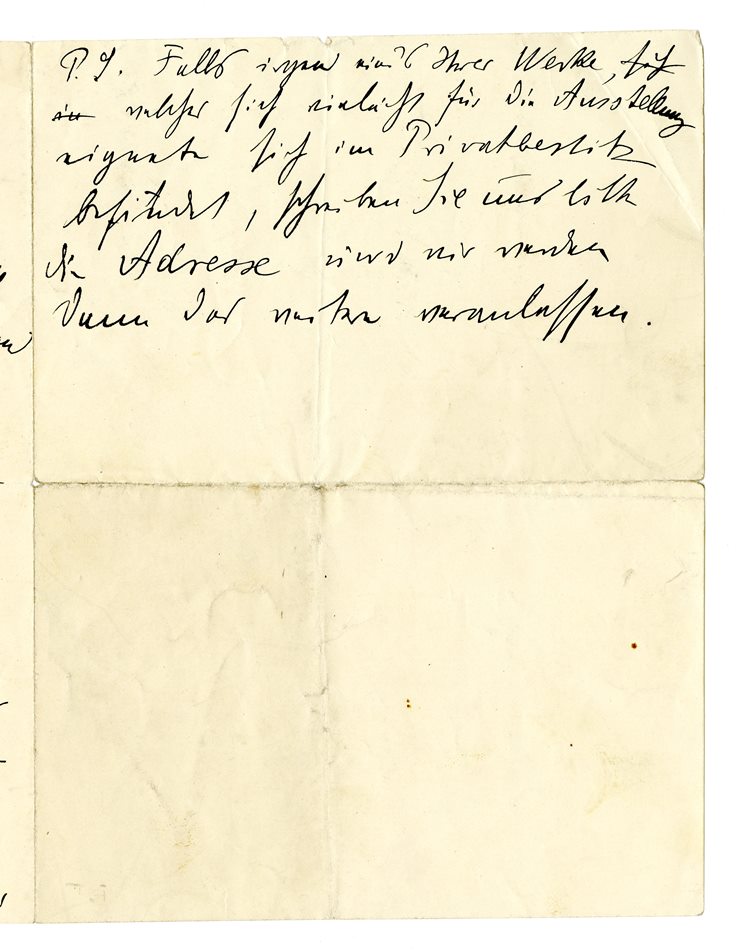 P.S. Falls irgend eines Ihrer Werke, sich
in welches sich vielleicht für die Ausstellung
eignete sich im Privatbesitz
befindet, schreiben Sie uns bitte
die Adresse und wir werden
dann das weitere veranlassen.